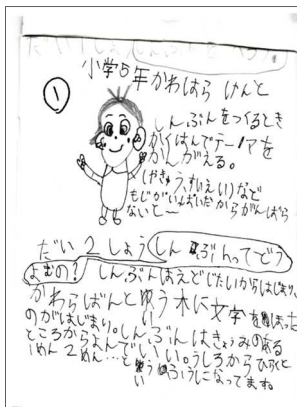 だい1しょうしんぶんをつくろう
小学5年かわはら けんと
①
しんぶんをつくるとき
かくはんでテーマを
かんがえる。
(やきゅう、すいえい)など
もじがいっぱいだからがんばら
ないと〜
だい2しょうしんぶんってどう
よむの?しんぶんはえどじだいからはじまり、
かわらばんと言う木に文字をほった
のがはじまり。しんぶんはきょうみのある
ところからよんでいい。うしろからひらくと
1めん2めん…と言うふうになってます。